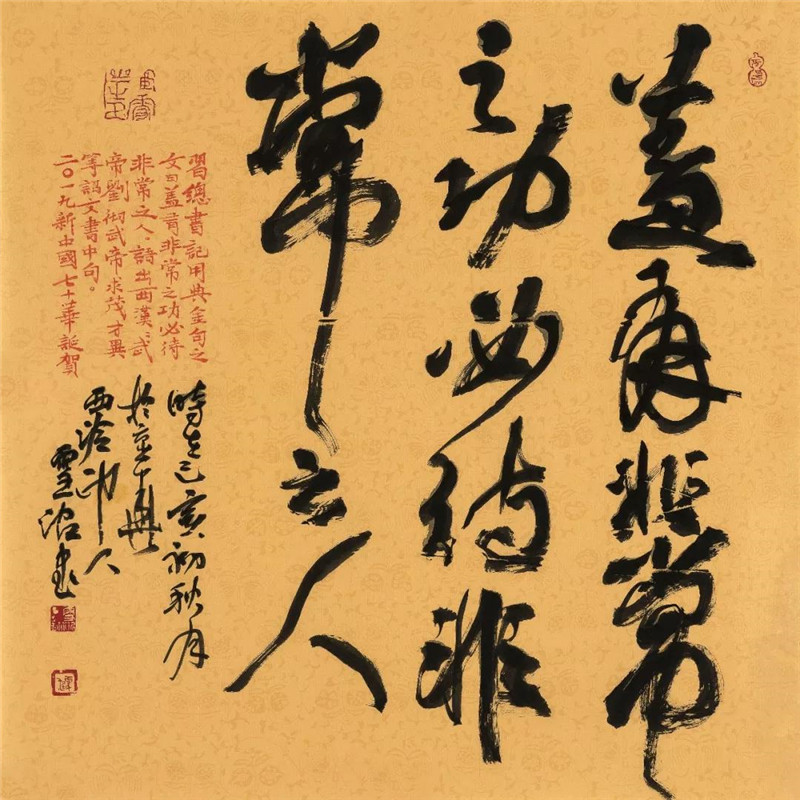 蓋有非常
之功必待非
常之人
習總書記用典金句之
文曰蓋有非常之功必待
非常之人。語出西漢、武
帝劉彻武帝求茂才異
等詔文書中句。
二〇一九新中國七十華誕賀
時在己亥初秋月
於京
西泠印人
書